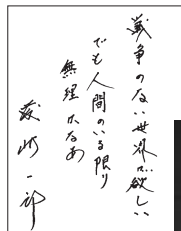 戦争のない世界が欲しい
でも人間のいる限り
無理かなあ
一郎